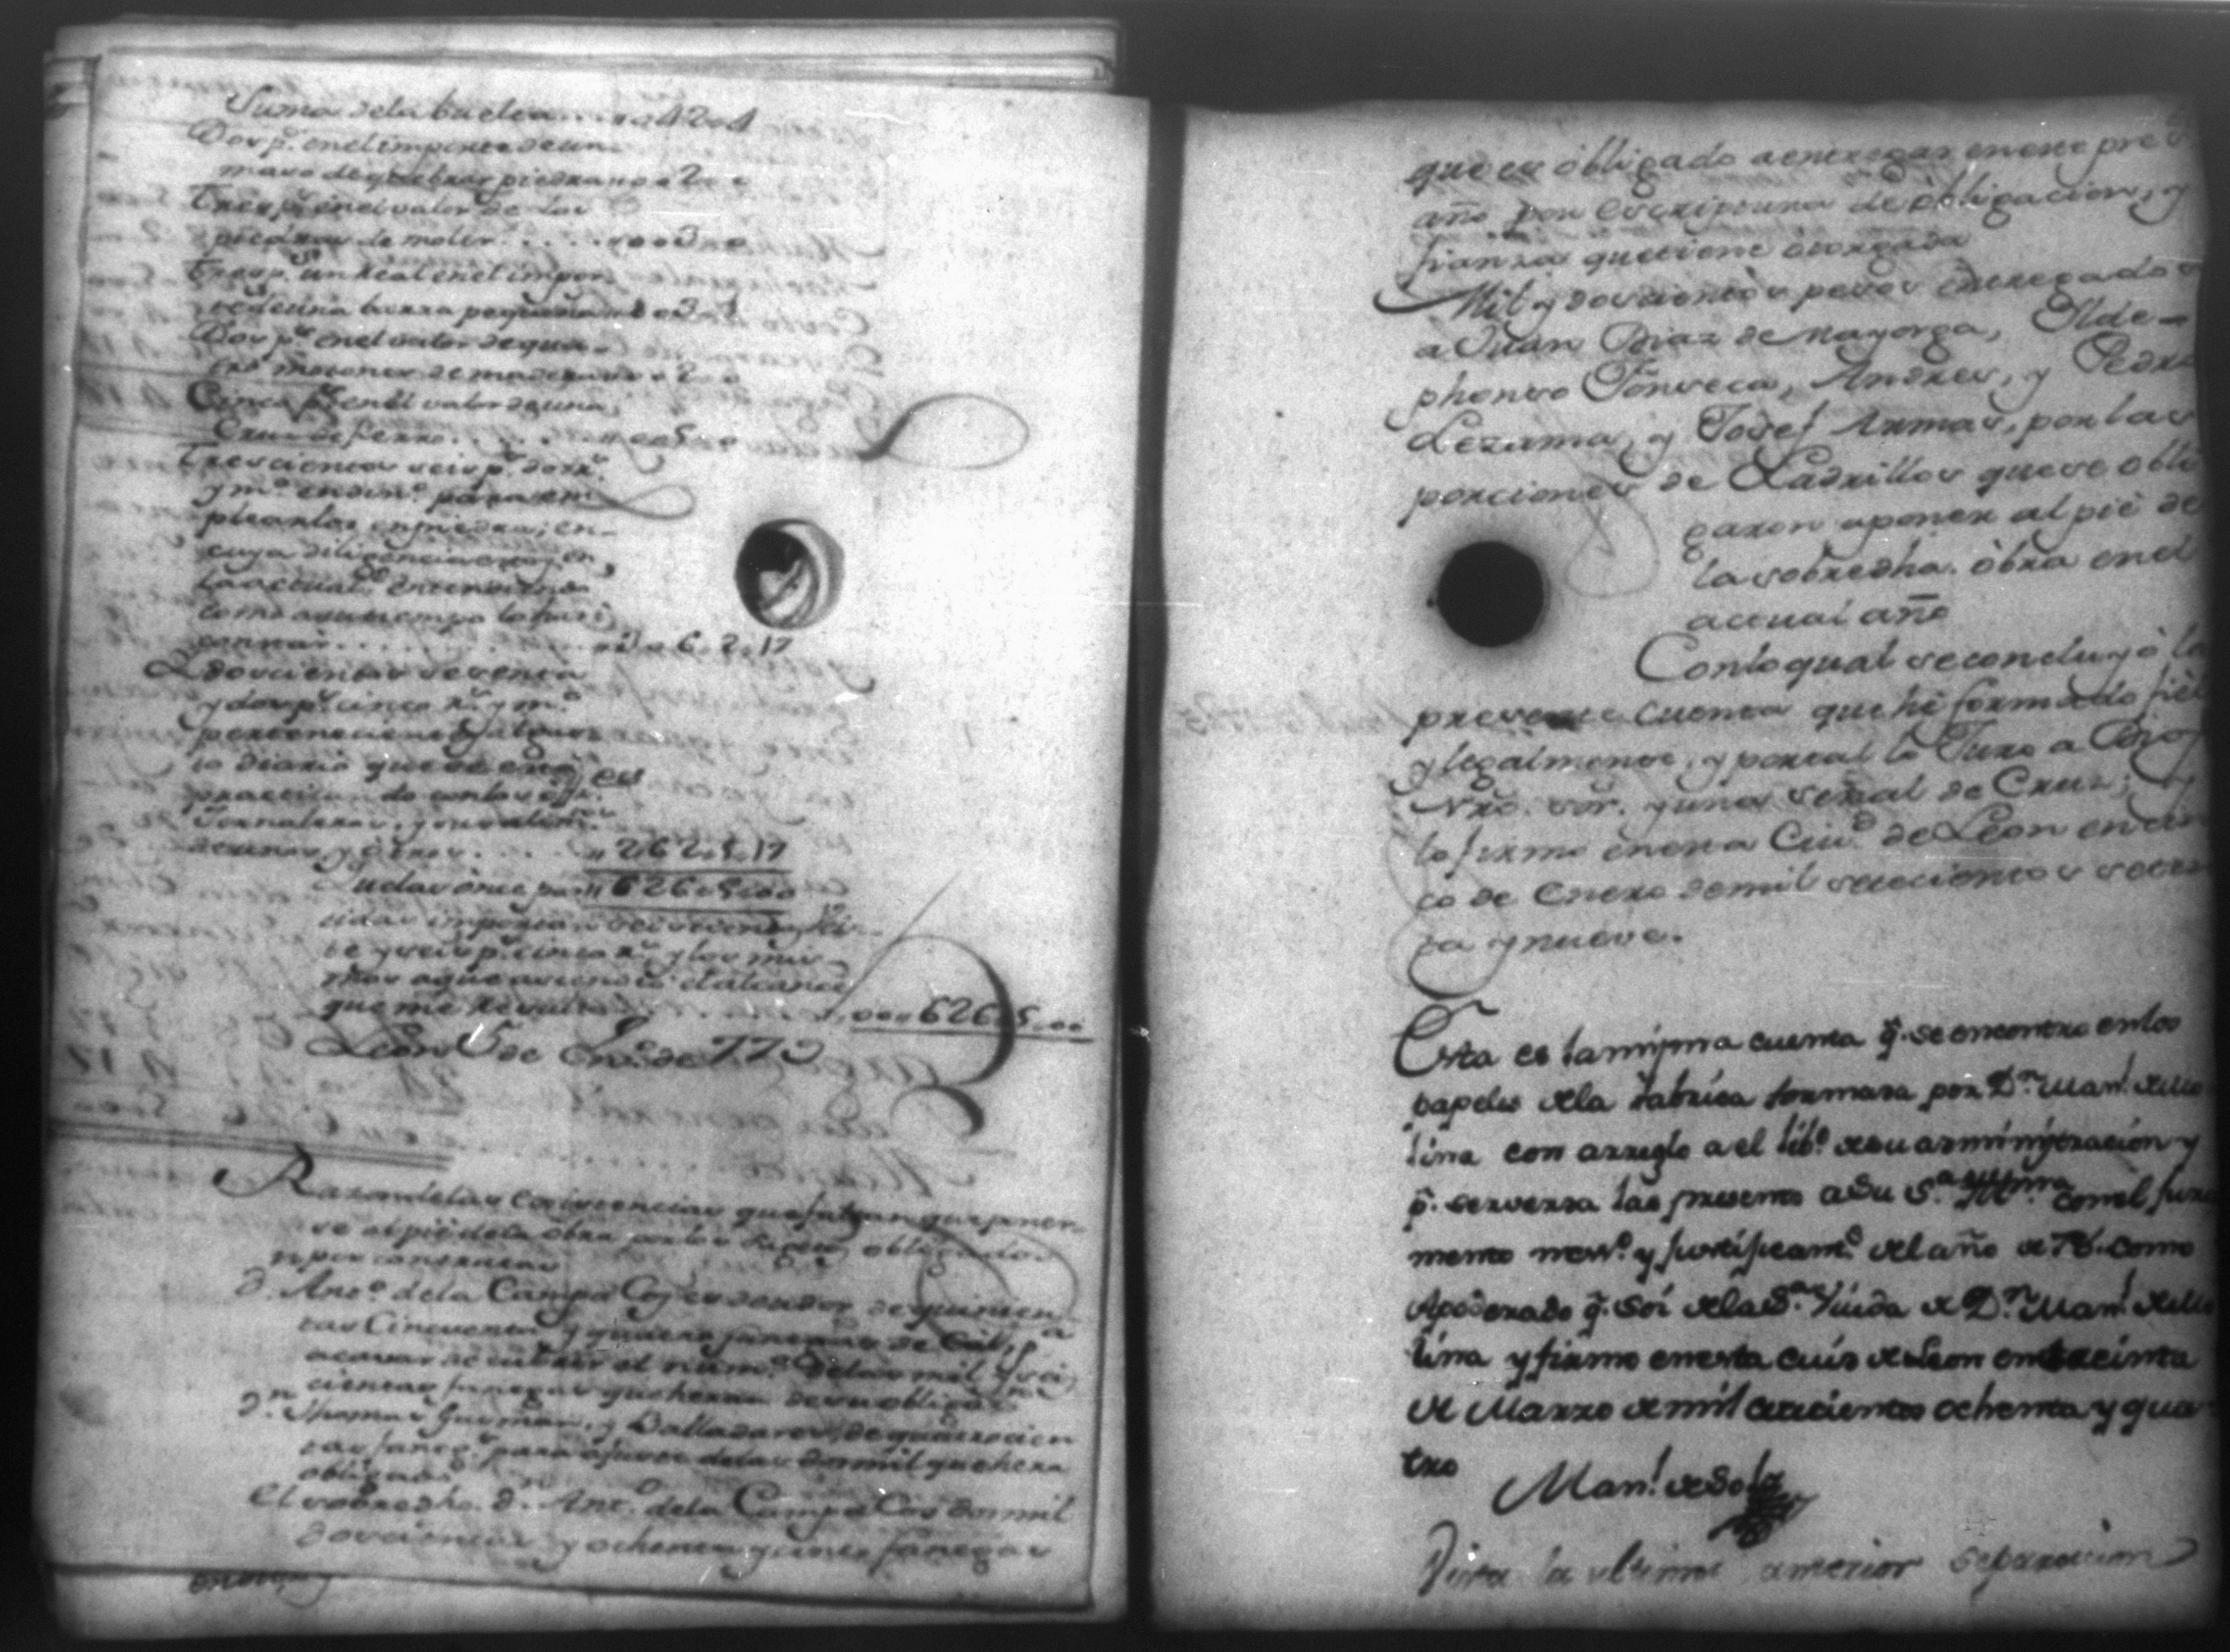 Suma dela buelta . . . 42 4
Dos p.s en el importe de un
maso de quebrar piedra 2
Tres p.s en el valor de dos
piedras de moler . . . . 3
Tres p.s un Real en el impor
te de una barra pequeña 3 1
Dos p.s en el valor de qua-
tro mojones de madera 2
Cinco p.s en el valor de una
Cruz de fierro . . . . . 5
Trescientos seis p.s dos rr.s
y m.o en din.o para em
plearlos en piedra; en
cuya diligencia estoy en
la actual.d entendiendo
como a su tiempo
. . . . . 3 6. 2. 17
Doscientos sesenta
y dos p.s cinco rr.s y m.o
pertenecientes
diario que
practicando con los
Jornaleros, y
de unos y otros . . . 262. 5. 17
626. 5. 00
tidas importan seiscientos vein-
te y seis p.s cinco rr.s y los mis-
mos a que asciende el alcance
que me resulta . . . . . 626. 5. 00
Leon 5 de En.o de 779
Razon delas existencias que faltan que poner-
se al pie dela obra por los sugetos obligados
y por
D. Ant.o dela Campa Cos es deudor de quinien
tas Cinquenta y quatro fanegas de Cal, p.a
acavar de cubrir el num.o delas mil y sei
cientas fanegas que heran de su obligaz.n
D.n Thomas Guzman, y Balladares, de quatrocien
tas faneg.s para delas dosmil que hera
obligado
El sobredho. D.n Ant.o dela Campa Cos dosmil
doscientas y ochenta y fanegas
que es obligado a entregar en este pre
año por escriptura de obligacion, y
fianza que tiene otorgada
Mil y doscientos pesos entregados
a Juan Diaz de Mayorga, Ilde-
phonso Fonseca, Andres, y Pedro
Lezama, y Josef Armas, por las
porciones de Ladrillos que se obli
garon a poner al pie de
la sobredha. obra en el
actual año
Con lo qual se concluyó la
presente cuenta que hé formado fiel
y legalmente, y por tal lo Juro a Dios
Nro. sor. y una señal de Cruz; y
lo firmo en esta Ciu.d de Leon en cin
co de Enero de mil setecientos seten
ta y nueve.
Esta es la misma cuenta q. se encontro en los
papeles dela fabrica formada por D.n Man.l de
lina con arreglo a el lib.o de su administracion y
q. las presento a Su S.a Ill.ma con el jura
mento neses.o y justificant.s del año de 78. como
Apoderado q. soi dela S.a Viuda de D.n Man.l de
lina y firmo en esta ciud de Leon en treinta
de Marzo de mil setecientos ochenta y qua
tro
Man.l de Sola
Vista la ultima anterior separacion